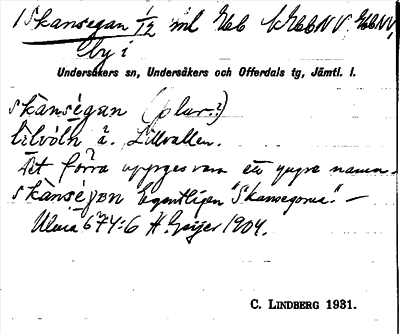 Skansegan 1/12 mil
by i
Undersåkers sn, Undersåkers och Offerdals tg, Jämtl. l.
skànsègan (plur.?)
lìlvóln å. Lillvallen.
Det förra uppges vara ett yngre namn.
skànséjon Egentligen "Skansegorna". –
Ulma 674:6 H. Geijer 1904.
C. LINDBERG 1931.